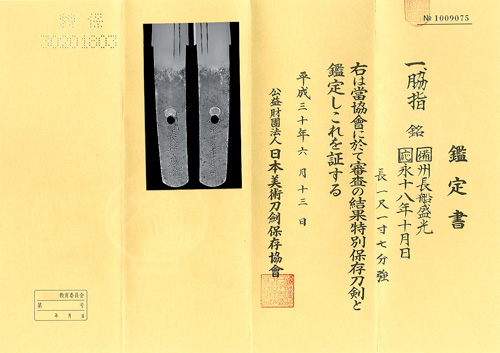 № 1009075
鑑定書
一、脇指 銘
備州長船盛光
應永十八年十月日
長 一尺一寸七分強
右は當協會に於て審査の結果特別保存刀剣と
鑑定しこれを証する
平成三十年六月十三日
公益財團法人 日本美術刀劍保存協會
特保
30201803
教育委員会
第 号
年 月 日